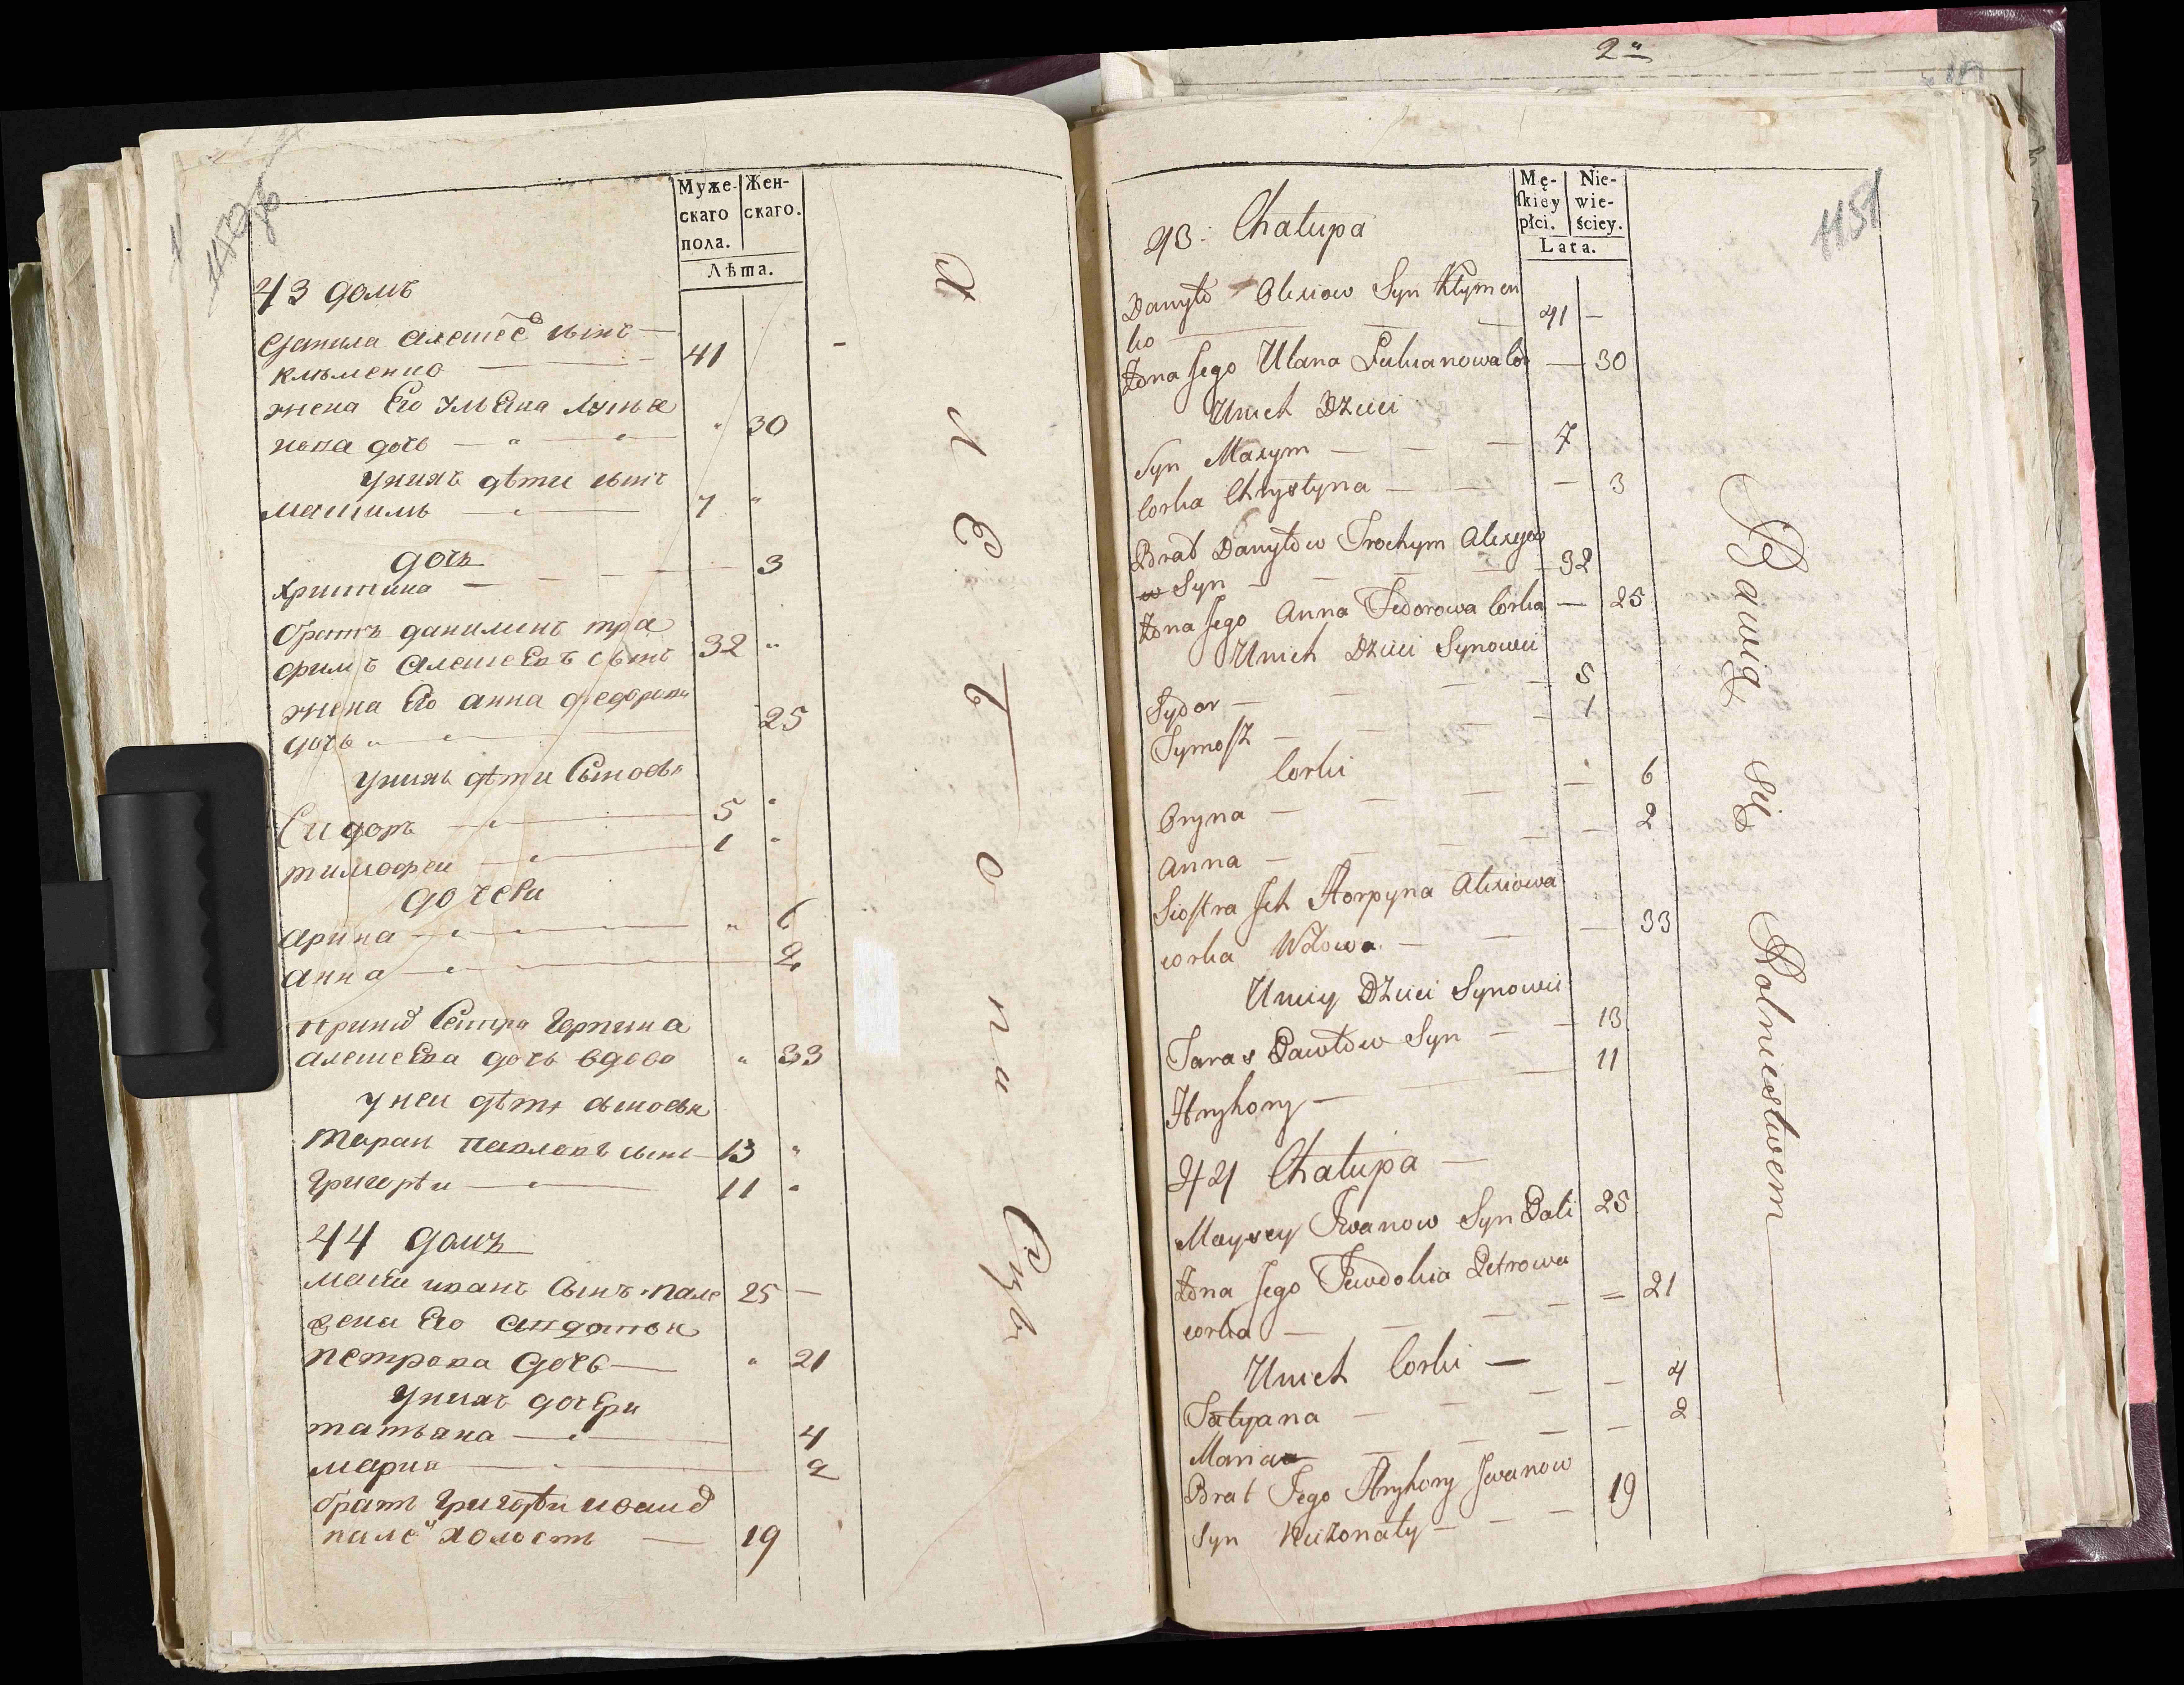 Муже-
скаго
пола.
Жен-
скаго.
Лѣта.
43 домъ
Данила Алешеевъ сынъ —
клѣменко — 41
жена Его Ульена Лукья
нова дочь — 30
Унихъ дѣти сынъ
Машимъ — 7
дочь
Христина — 3
братъ данилинъ тра
фимъ Алешевъ сынъ 32
жена Его анна федорова
дочь — 25
Унихъ дѣти Сыновья
Сидоръ — 5
тимофеи — 1
дочери
Арина — 6
анна — 2
Сестра Горпина
алешева дочь вдова 33
у неи дѣти сыновья
Тарасъ павловъ сынъ — 13
Григорѣи — 11
44 домъ
иванъ Сынъ пале 25 —
жена Его Авдотья
петрова дочь — 21
Унихъ дочери
татьана — 4
мариа — 2
братъ Григорѣи
пале холостъ — 19
2
1151
Mę-
ſkiey
płci.
Nie-
wie-
ściey.
Lata.
43. Chałupa
Danyło Olexiow Syn Kłymen
ko — 41 —
Żona Jego Ulana Łukianowa Cor — 30
Unich Dzieci
Syn Maxym — 7
Corka Chrystyna — 3
Brat Danyłow Trochym Alexyio
w Syn — 32
Żona Jego Anna Fedorowa Corka — 25
Unich Dzieci Synowie
Sydor — 5
Tymoſz — 1
Corki
Oryna — 6
Anna — 2
Sioſtra Ich Horpyna Alexiowa
corka Wdowa — 33
Uniey Dzieci Synowie
Taras Pawłow Syn — 13
Hryhory — 11
44 Chałupa —
Moysey Iwanow Syn Pali 25
Żona Jego Jewdokia Petrowa
corka — 21
Unich Corki —
Tatyana — 4
Maria — 2
Brat Jego Hryhory Iwanow
Syn Nieżonaty — 19
Bawią się Rolnictwem